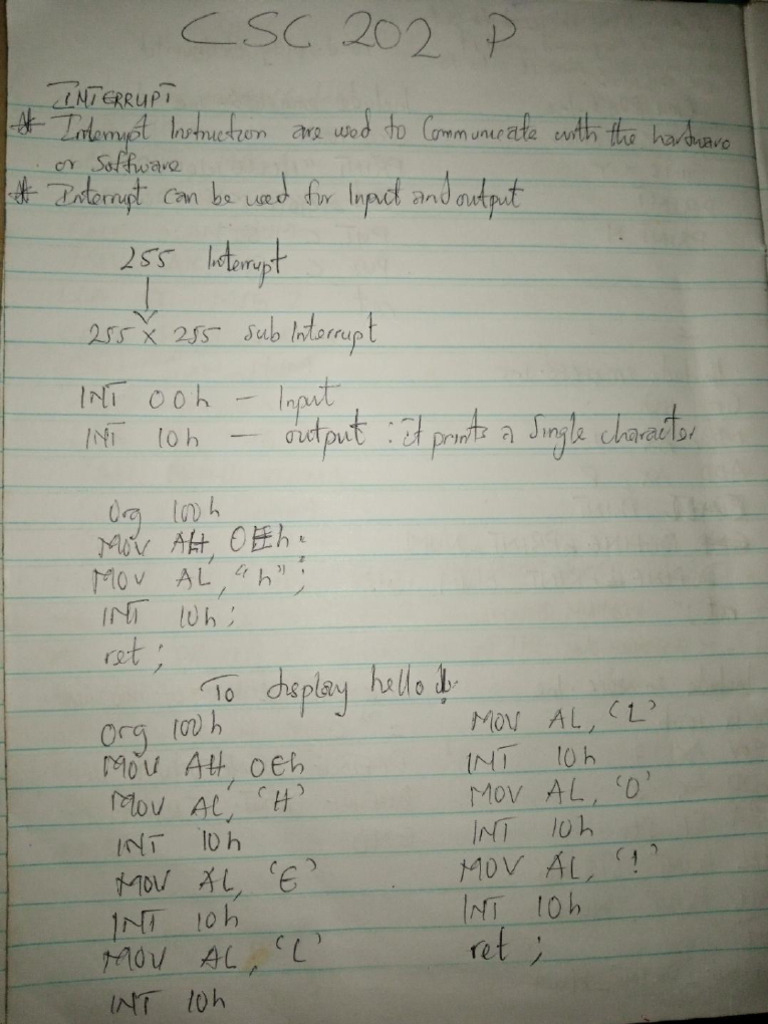 CSC 202 P
INTERRUPT
* Interrupt Instruction are used to Communicate with the hardware
or Software
* Interrupt can be used for Input and output
255 Interrupt
255 x 255 sub Interrupt
INT 00h - Input
INT 10h - output : it prints a single character
Org 100h
MOV AH, 0Eh;
MOV AL, "h" ;
INT 10h ;
ret ;
To display hello !
Org 100h
MOV AH, 0Eh
MOV AL, 'H'
INT 10h
MOV AL, 'E'
INT 10h
MOV AL, 'L'
INT 10h
MOV AL, 'L'
INT 10h
MOV AL, 'O'
INT 10h
MOV AL, '!'
INT 10h
ret ;